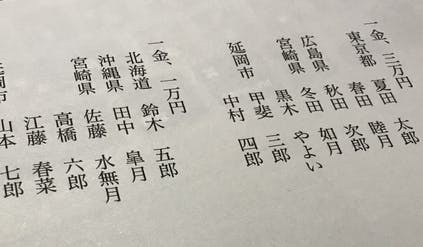 一金、三万円
東京都 夏田 太郎
春田 睦月
秋田 次郎
広島県 冬田 如月
宮崎県 黒木 やよい
甲斐 三郎
延岡市 中村 四郎
一金、一万円
北海道 鈴木 五郎
沖縄県 田中 皐月
宮崎県 佐藤 水無月
高橋 六郎
江藤 春菜
岡市 山本 七郎